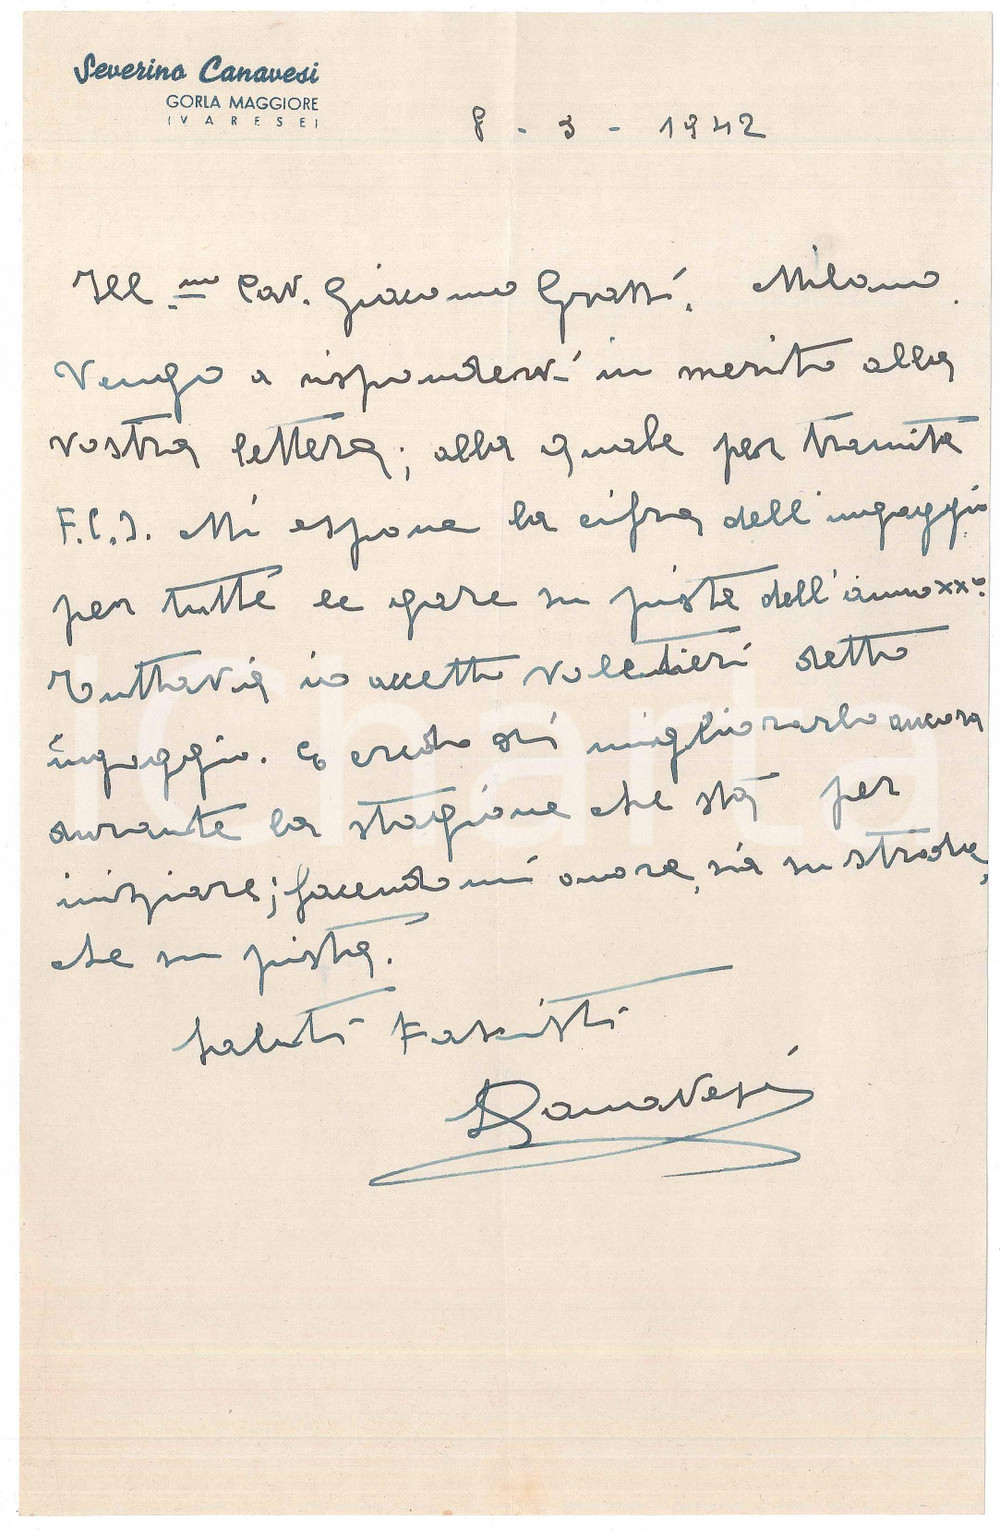 Severino Canavesi
GORLA MAGGIORE
(VARESE)
8 - 3 - 1942
Ill.mo Cav. Giacomo Grassi. Milano.
Vengo a rispondervi in merito alla
vostra lettera; alla quale per tramite
F.C.I. Mi espone la cifra dell'ingaggio
per tutte le gare su pista dell'anno XX°.
Tuttavia io accetto volentieri detto
ingaggio. E credo di migliorarlo ancora
durante la stagione che sta per
iniziare; facendomi onore, sia su strada,
che su pista.
Saluti Fascisti
SCanavesi
ICharta